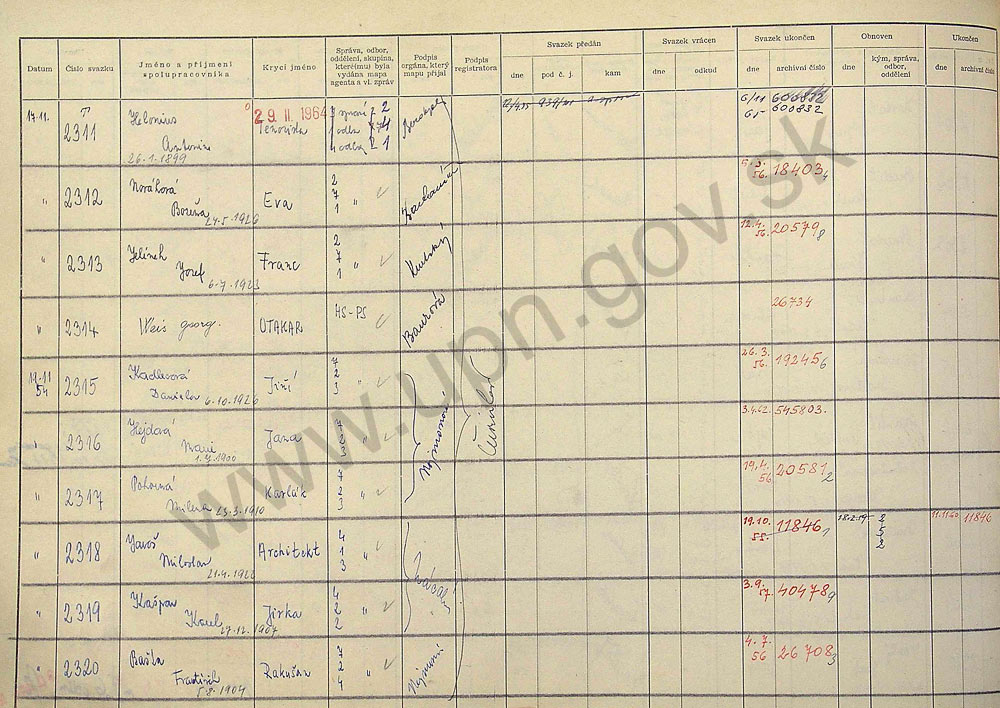 Datum
Číslo svazku
Jméno a příjmení spolupracovníka
Krycí jméno
Správa, odbor, oddělení, skupina, které(mu) byla vydána mapa agenta a vl. zpráv
Podpis orgána, který mapu přijal
Podpis registratora
Svazek předán
dne
pod č. j.
kam
Svazek vrácen
dne
odkud
Svazek ukončen
dne
archivní číslo
Obnoven
dne
kým, správa, odbor, oddělení
Ukončen
dne
archivní číslo
17.11.
2311
Antonín
26.1.1899
29. II. 1964
600832
600832
"
2312
Nováková
Božena
Eva
2
7
1
"
5.3.
56.
18403
"
2313
Jelínek
Josef
6.7.1923
Franc
2
7
1
"
12.4.
56.
20579
8
"
2314
Weis Georg.
OTAKAR
HS-PS
Baurová
26734
2315
Kadlecová
Daniela
Jiří
7
2
3
"
26.3.
56.
19245
6
"
2316
Hejdová
Marie
1.7.1900
Jana
7
2
3
"
3.4.62.
545803.
"
2317
Milena 23.3.1910
Karlák
7
2
3
"
19.4.
56
20581
2
"
2318
Jaroš
Miloslav
Architekt
4
1
3
"
19.10.
55.
11846
11.11.60
11846
"
2319
Kašpar
Karel
27.12.1907
Jirka
4
2
2
"
3.9.
57.
40478
9
"
2320
Bašta
František
5.8.1904
Rakušan
7
2
4
"
4.7.
56
26708
3
www.upn.gov.sk